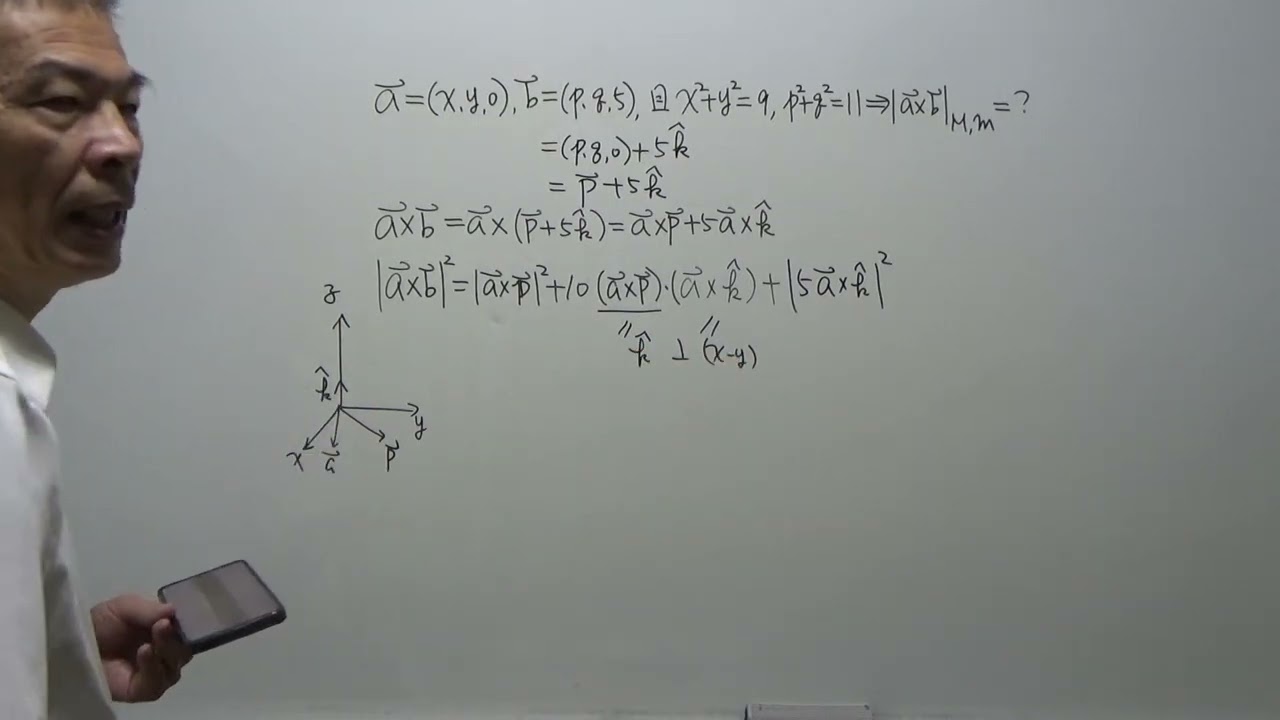 a⃗=(x,y,0), b⃗=(p,q,5), 且 x²+y²=9, p²+q²=11⇒|a⃗×b⃗|M,m=?
=(p,q,0)+5k̂
=p⃗+5k̂
a⃗×b⃗=a⃗×(p⃗+5k̂)=a⃗×p⃗+5a⃗×k̂
|a⃗×b⃗|²=|a⃗×p⃗|²+10(a⃗×p⃗)·(a⃗×k̂)+|5a⃗×k̂|²
∥k̂ ⊥ ∥(x-y)
z
k̂
y
x a⃗ p⃗